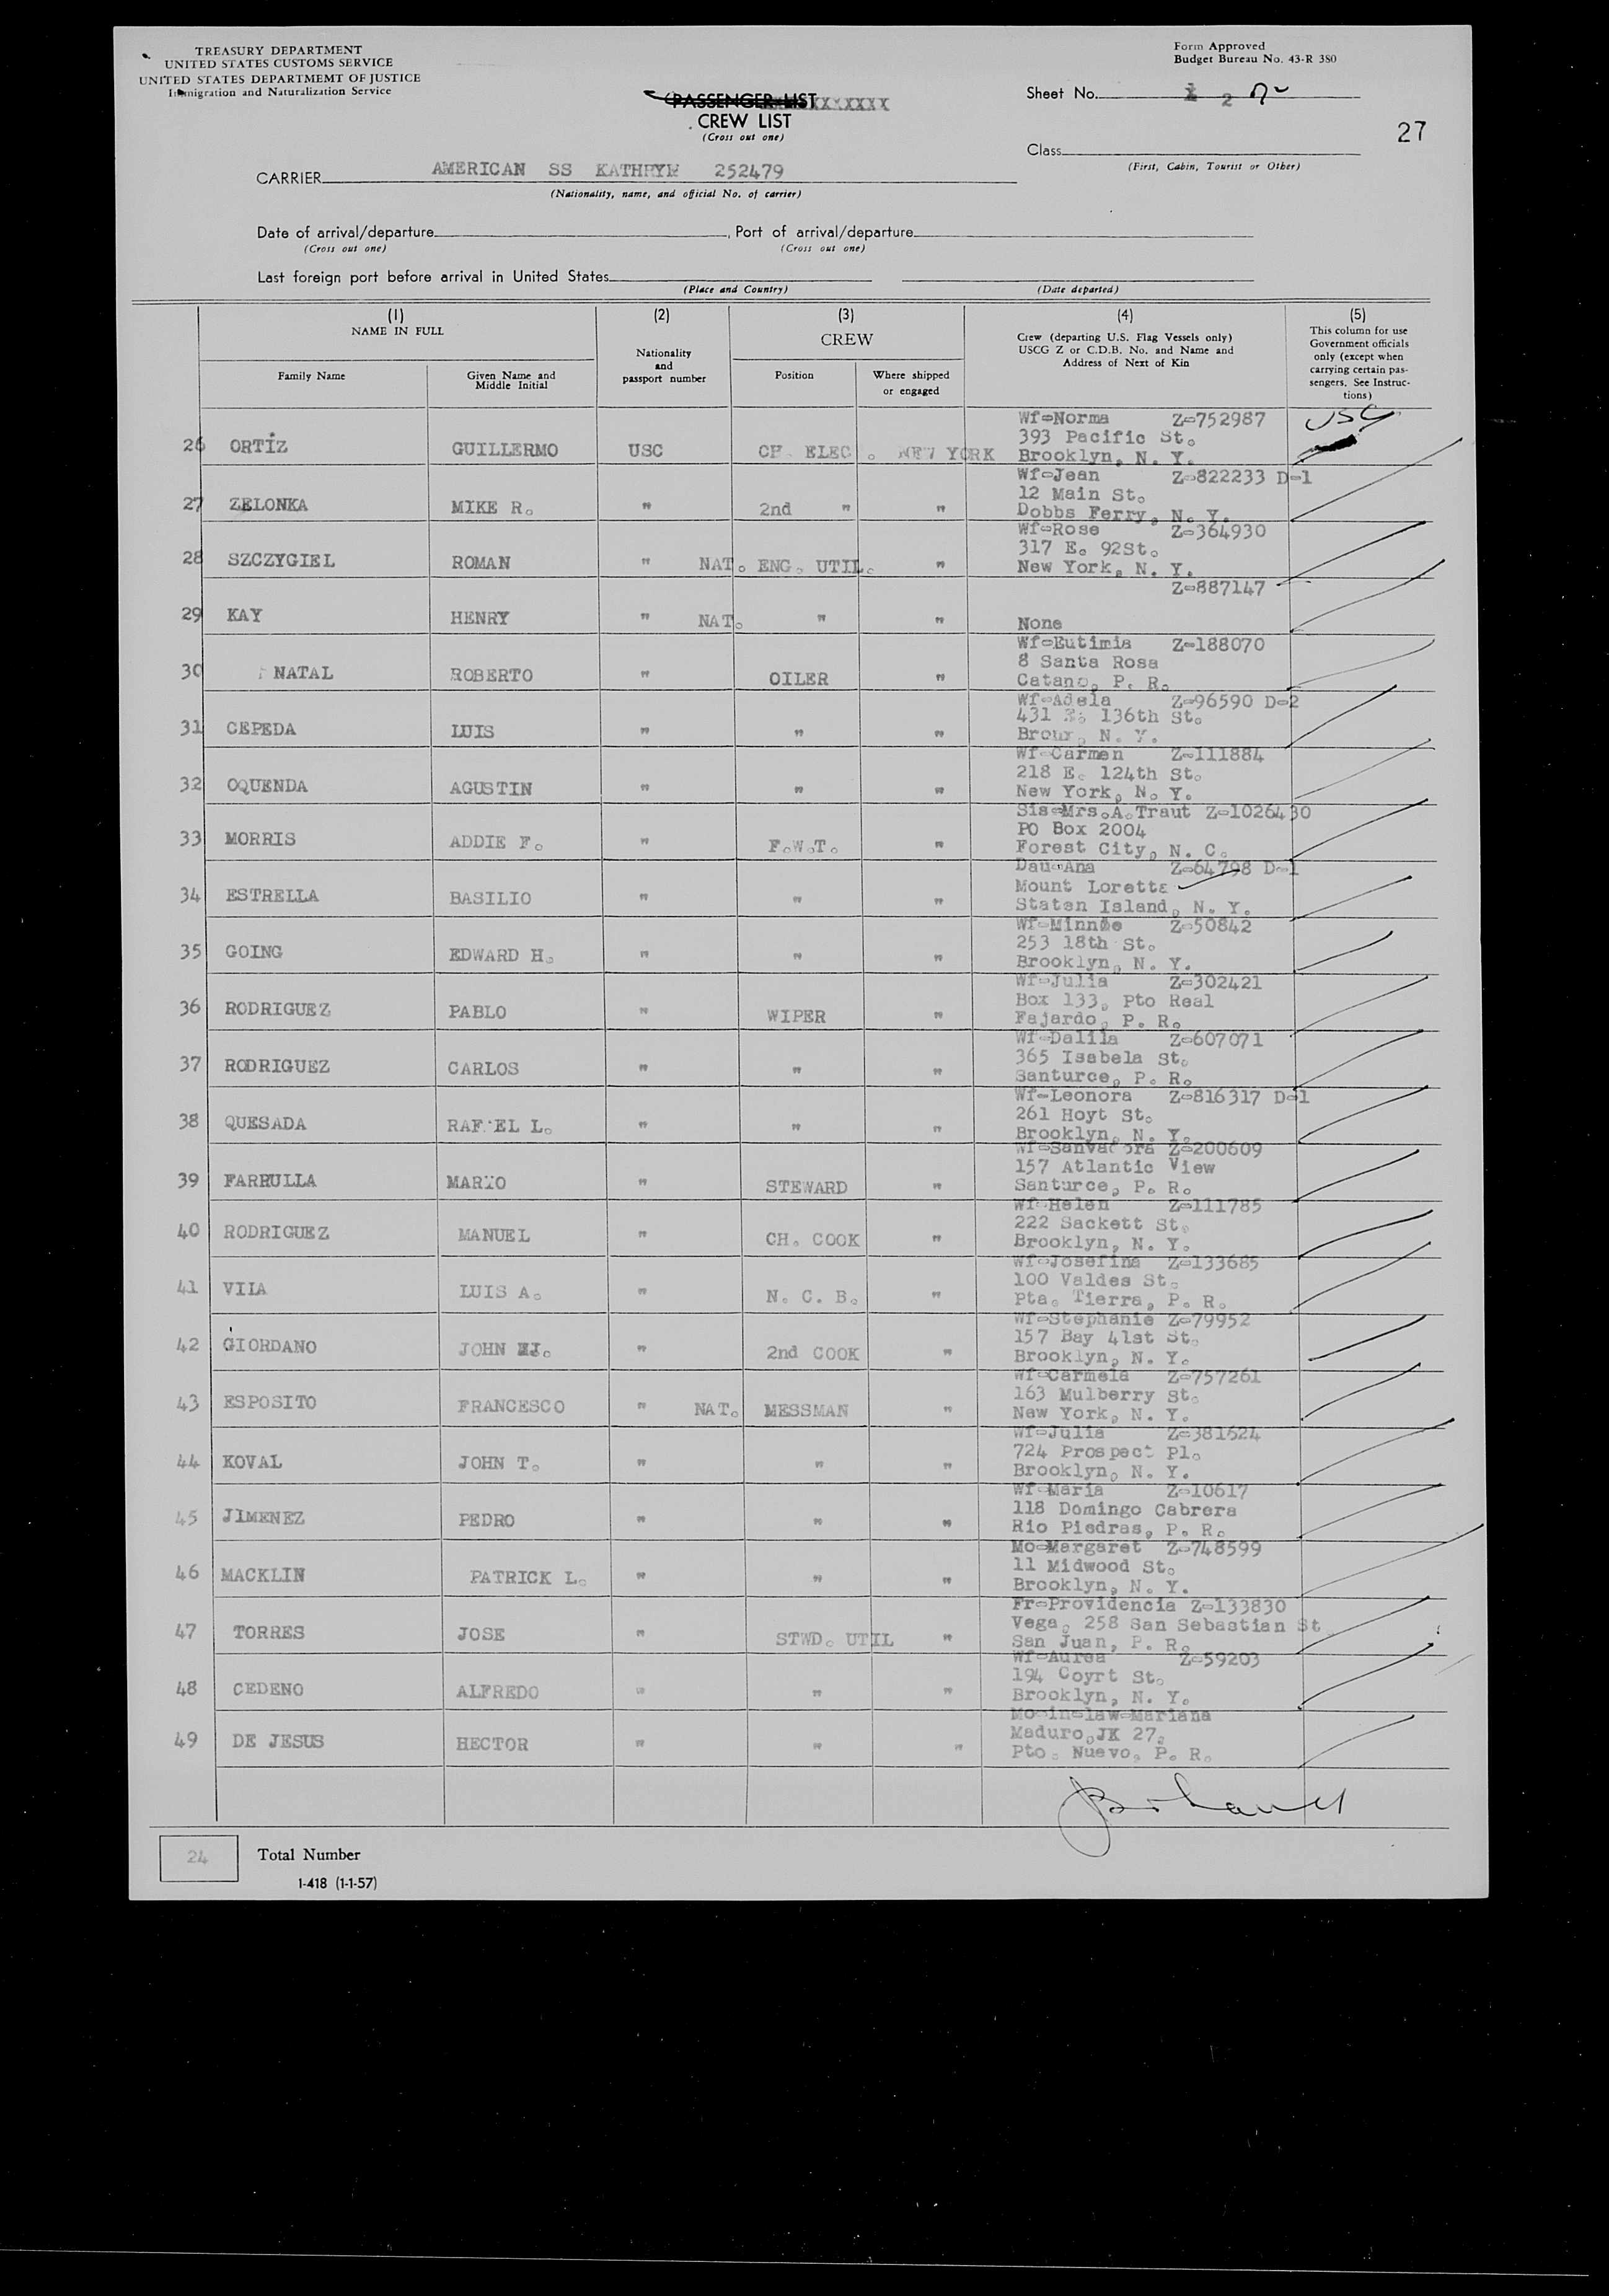 TREASURY DEPARTMENT
UNITED STATES CUSTOMS SERVICE
UNITED STATES DEPARTMEMT OF JUSTICE
Immigration and Naturalization Service
Form Approved
Budget Bureau No. 43-R 380
(PASSENGER LIST XXXXXXX
CREW LIST
(Cross out one)
Sheet No. 2
27
Class
(First, Cabin, Tourist or Other)
CARRIER AMERICAN SS KATHRYN 252479
(Nationality, name, and official No. of carrier)
Date of arrival/departure , Port of arrival/departure
(Cross out one) (Cross out one)
Last foreign port before arrival in United States
(Place and Country) (Date departed)
(1) NAME IN FULL
Family Name
Given Name and Middle Initial
(2)
Nationality and passport number
(3)
CREW
Position
Where shipped or engaged
(4)
Crew (departing U.S. Flag Vessels only)
USCG Z or C.D.B. No. and Name and
Address of Next of Kin
(5)
This column for use
Government officials
only (except when
carrying certain pas-
sengers. See Instruc-
tions)
Wf-Norma Z-752987 USC
26 ORTIZ GUILLERMO USC CH. ELEC. NEW YORK 393 Pacific St.
Brooklyn, N. Y.
Wf-Jean Z-822233 D-1
27 ZELONKA MIKE R. " 2nd " " 12 Main St.
Dobbs Ferry, N. Y.
Wf-Rose Z-364930
28 SZCZYGIEL ROMAN " NAT. ENG. UTIL. " 317 E. 92St.
New York, N. Y.
Z-887147
29 KAY HENRY " NAT. " " None
Wf-Eutimia Z-188070
30 NATAL ROBERTO " OILER " 8 Santa Rosa
Catano, P. R.
Wf-Adela Z-96590 D-2
31 CEPEDA LUIS " " " 431 E. 136th St.
Bronx, N. Y.
Wf-Carmen Z-111884
32 OQUENDA AGUSTIN " " " 218 E. 124th St.
New York, N. Y.
Sis-Mrs.A.Traut Z-1026430
33 MORRIS ADDIE F. " F.W.T. " PO Box 2004
Forest City, N. C.
Dau-Ana Z-64798 D-1
34 ESTRELLA BASILIO " " " Mount Lorette
Staten Island, N. Y.
Wf-Minnie Z-50842
35 GOING EDWARD H. " " " 253 18th St.
Brooklyn, N. Y.
Wf-Julia Z-302421
36 RODRIGUEZ PABLO " WIPER " Box 133, Pto Real
Fajardo, P. R.
Wf-Dalila Z-607071
37 RODRIGUEZ CARLOS " " " 365 Isabela St.
Santurce, P. R.
Wf-Leonora Z-816317 D-1
38 QUESADA RAFAEL L. " " " 261 Hoyt St.
Brooklyn, N. Y.
Wf-Sanvadora Z-200609
39 FARRULLA MARIO " STEWARD " 157 Atlantic View
Santurce, P. R.
Wf-Helen Z-111785
40 RODRIGUEZ MANUEL " CH. COOK " 222 Sackett St.
Brooklyn, N. Y.
Wf-Josefina Z-133685
41 VILA LUIS A. " N. C. B. " 100 Valdes St.
Pta. Tierra, P. R.
Wf-Stephanie Z-79952
42 GIORDANO JOHN J. " 2nd COOK " 157 Bay 41st St.
Brooklyn, N. Y.
Wf-Carmela Z-757261
43 ESPOSITO FRANCESCO " NAT. MESSMAN " 163 Mulberry St.
New York, N. Y.
Wf-Julia Z-381524
44 KOVAL JOHN T. " " " 724 Prospect Pl.
Brooklyn, N. Y.
Wf-Maria Z-10617
45 JIMENEZ PEDRO " " " 118 Domingo Cabrera
Rio Piedras, P. R.
Mo-Margaret Z-748599
46 MACKLIN PATRICK L. " " " 11 Midwood St.
Brooklyn, N. Y.
Fr-Providencia Z-133830
47 TORRES JOSE " STWD. UTIL " Vega, 258 San Sebastian St.
San Juan, P. R.
Wf-Aurea Z-59203
48 CEDENO ALFREDO " " " 194 Coyrt St.
Brooklyn, N. Y.
Mo-in-law-Mariana
49 DE JESUS HECTOR " " " Maduro,JK 27,
Pto. Nuevo, P. R.
24 Total Number
1-418 (1-1-57)